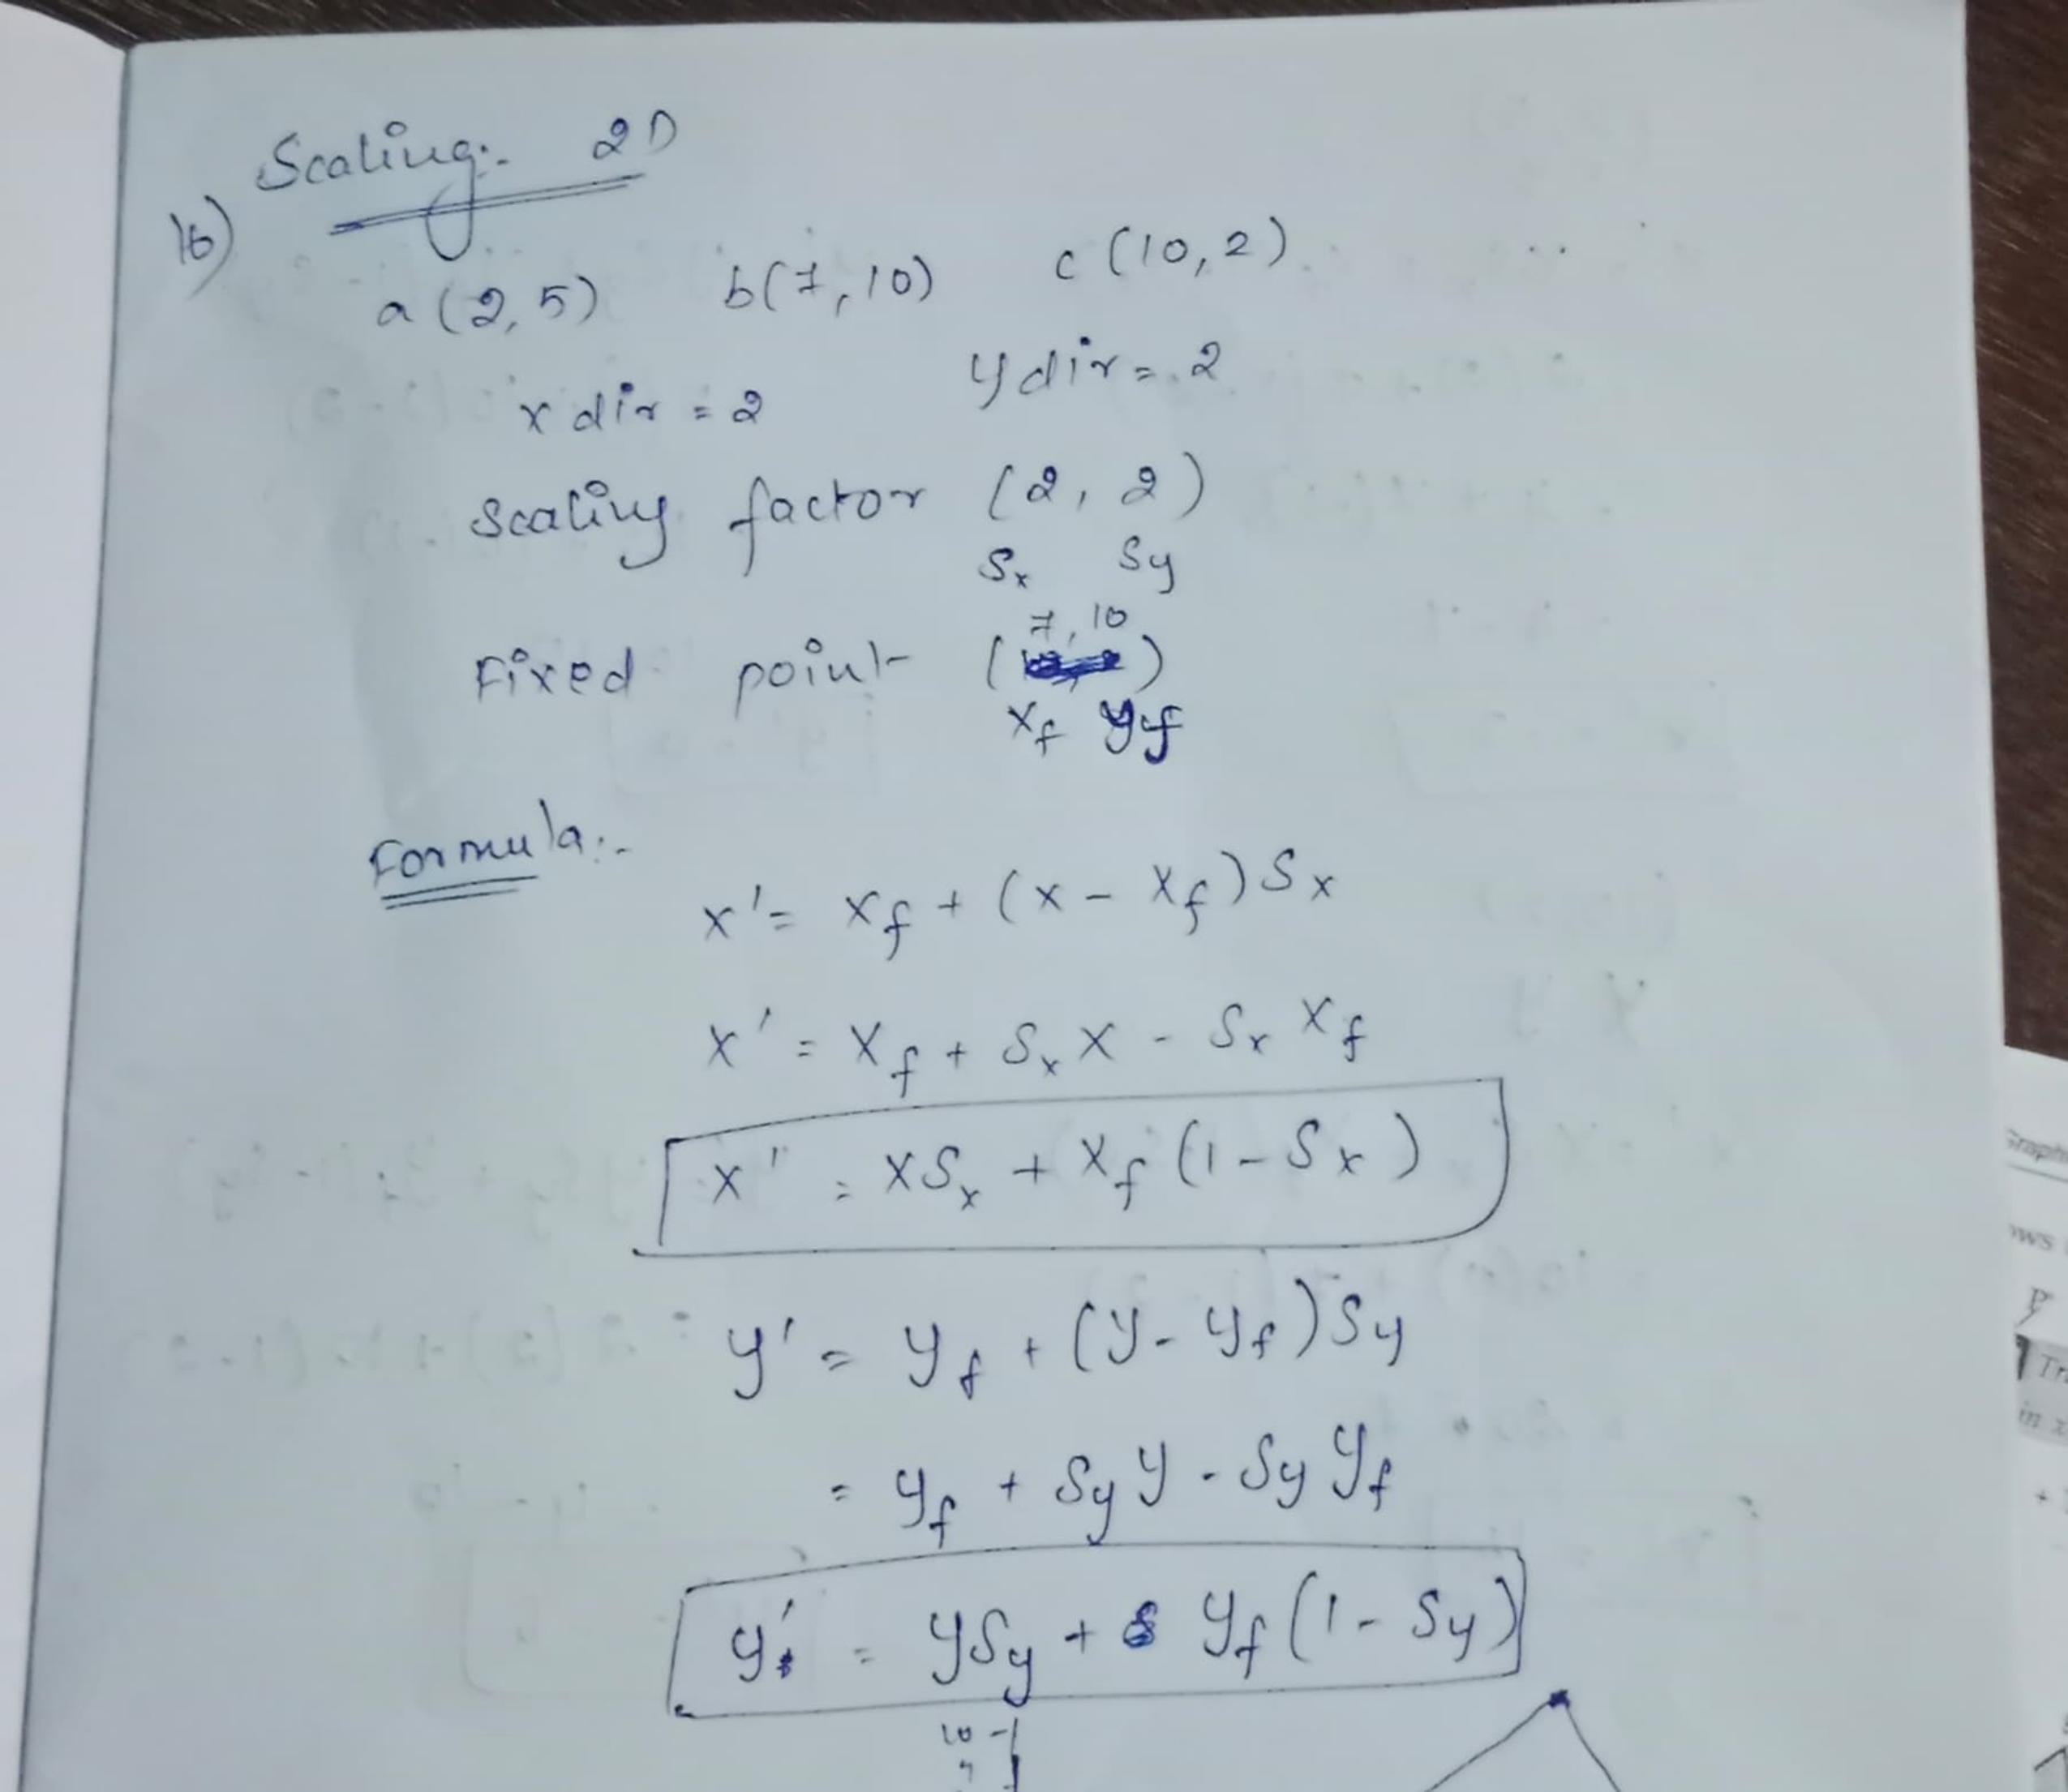 Scaling:- 2D
16)
a (2, 5) b(7, 10) c (10, 2)
x dir = 2 y dir = 2
Scaling factor (2, 2)
Sx Sy
7, 10
Fixed point ( )
xf yf
Formula:-
x' = xf + (x - xf) Sx
x' = xf + Sx x - Sx xf
x'' = xSx + xf (1 - Sx)
y' = yf + (y - yf) Sy
= yf + Sy y - Sy yf
y' = ySy + yf (1 - Sy)
10